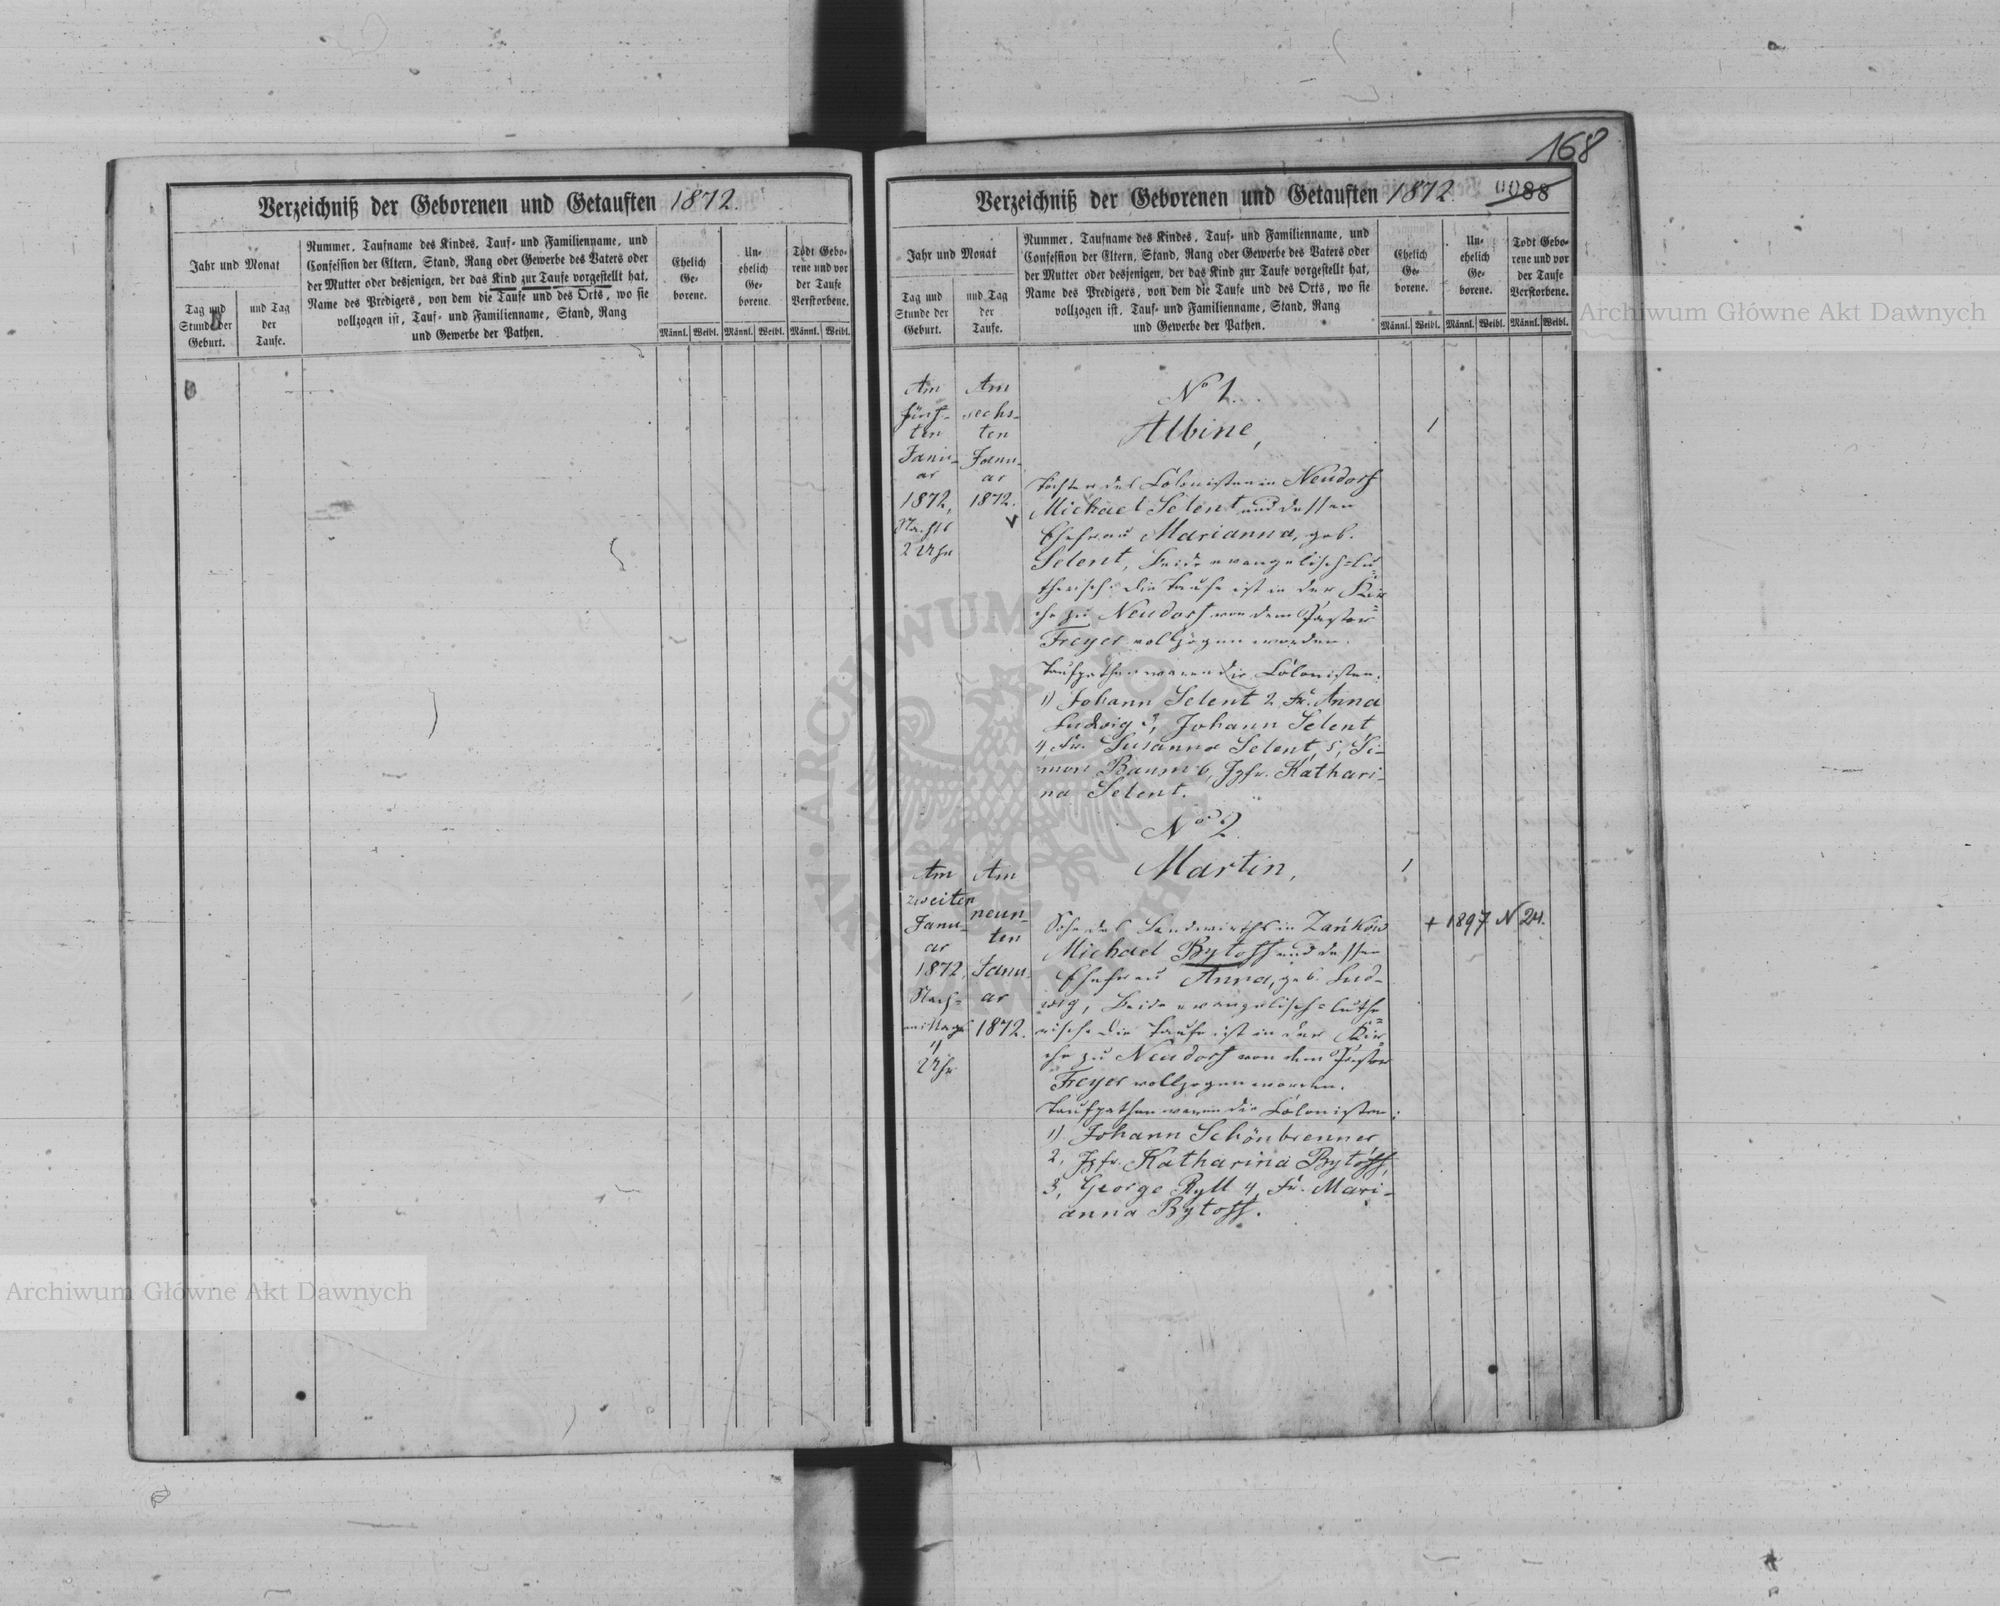 Verzeichniß der Geborenen und Getauften 1872.
Jahr und Monat
Tag und
Stunde der
Geburt.
und Tag
der
Taufe.
Nummer, Taufname des Kindes, Tauf- und Familienname, und
Confession der Eltern, Stand, Rang oder Gewerbe des Vaters oder
der Mutter oder desjenigen, der das Kind zur Taufe vorgestellt hat,
Name des Predigers, von dem die Taufe und des Orts, wo sie
vollzogen ist, Tauf- und Familienname, Stand, Rang
und Gewerbe der Pathen.
Ehelich
Ge-
borene.
Un-
ehelich
Ge-
borene
Todt Gebo-
rene und vor
der Taufe
Verstorbene.
Männl. Weibl. Männl. Weibl. Männl. Weibl.
168
Verzeichniß der Geborenen und Getauften 1872
88
Jahr und Monat
Tag und
Stunde der
Geburt.
und Tag
der
Taufe.
Nummer, Taufname des Kindes, Tauf- und Familienname, und
Confession der Eltern, Stand, Rang oder Gewerbe des Vaters oder
der Mutter oder desjenigen, der das Kind zur Taufe vorgestellt hat,
Name des Predigers, von dem die Taufe und des Orts, wo sie
vollzogen ist, Tauf- und Familienname, Stand, Rang
und Gewerbe der Pathen.
Ehelich
Ge-
borene.
Un-
ehelich
Ge-
borene.
Todt Gebo-
rene und vor
der Taufe
Verstorbene.
Männl. Weibl. Männl. Weibl. Männl. Weibl.
Am
fünf-
ten
Janu-
ar
1872,
Nachts
2 Uhr
Am
sechs-
ten
Janu-
ar
1872.
No 1.
Albine,
1
Tochter des Colonisten in Neudorf
Michael Selent und dessen
Ehefrau Marianna, geb.
Selent, beide evangelisch=lu=
therisch. Die Taufe ist in der Kir=
che zu Neudorf von dem Pastor
Freyer vollzogen worden.
Taufpathen waren die Colonisten:
1) Johann Selent 2, Fr. Anna
Ludwig 3, Johann Selent
4 Fr. Susanna Selent, 5, Si-
mon Baum 6, Jgfr. Kathari-
na Selent.
No 2
Am
zweiten
Janu-
ar
1872,
Nach-
mittags
2 Uhr
Am
neun-
ten
Janu-
ar
1872.
Martin,
1
+ 1897 N 24.
Sohn des Landwirths in Zańków
Michael Bytoff und dessen
Ehefrau Anna, geb. Lud-
wig, beide evangelisch=luthe=
risch. Die Taufe ist in der Kir=
che zu Neudorf von dem Pastor
Freyer vollzogen worden.
Taufpathen waren die Colonisten:
1) Johann Schönbrenner
2, Jgfr. Katharina Bytoff,
3, George Ryll 4, Fr. Mari-
anna Bytoff.
Archiwum Główne Akt Dawnych
Archiwum Główne Akt Dawnych